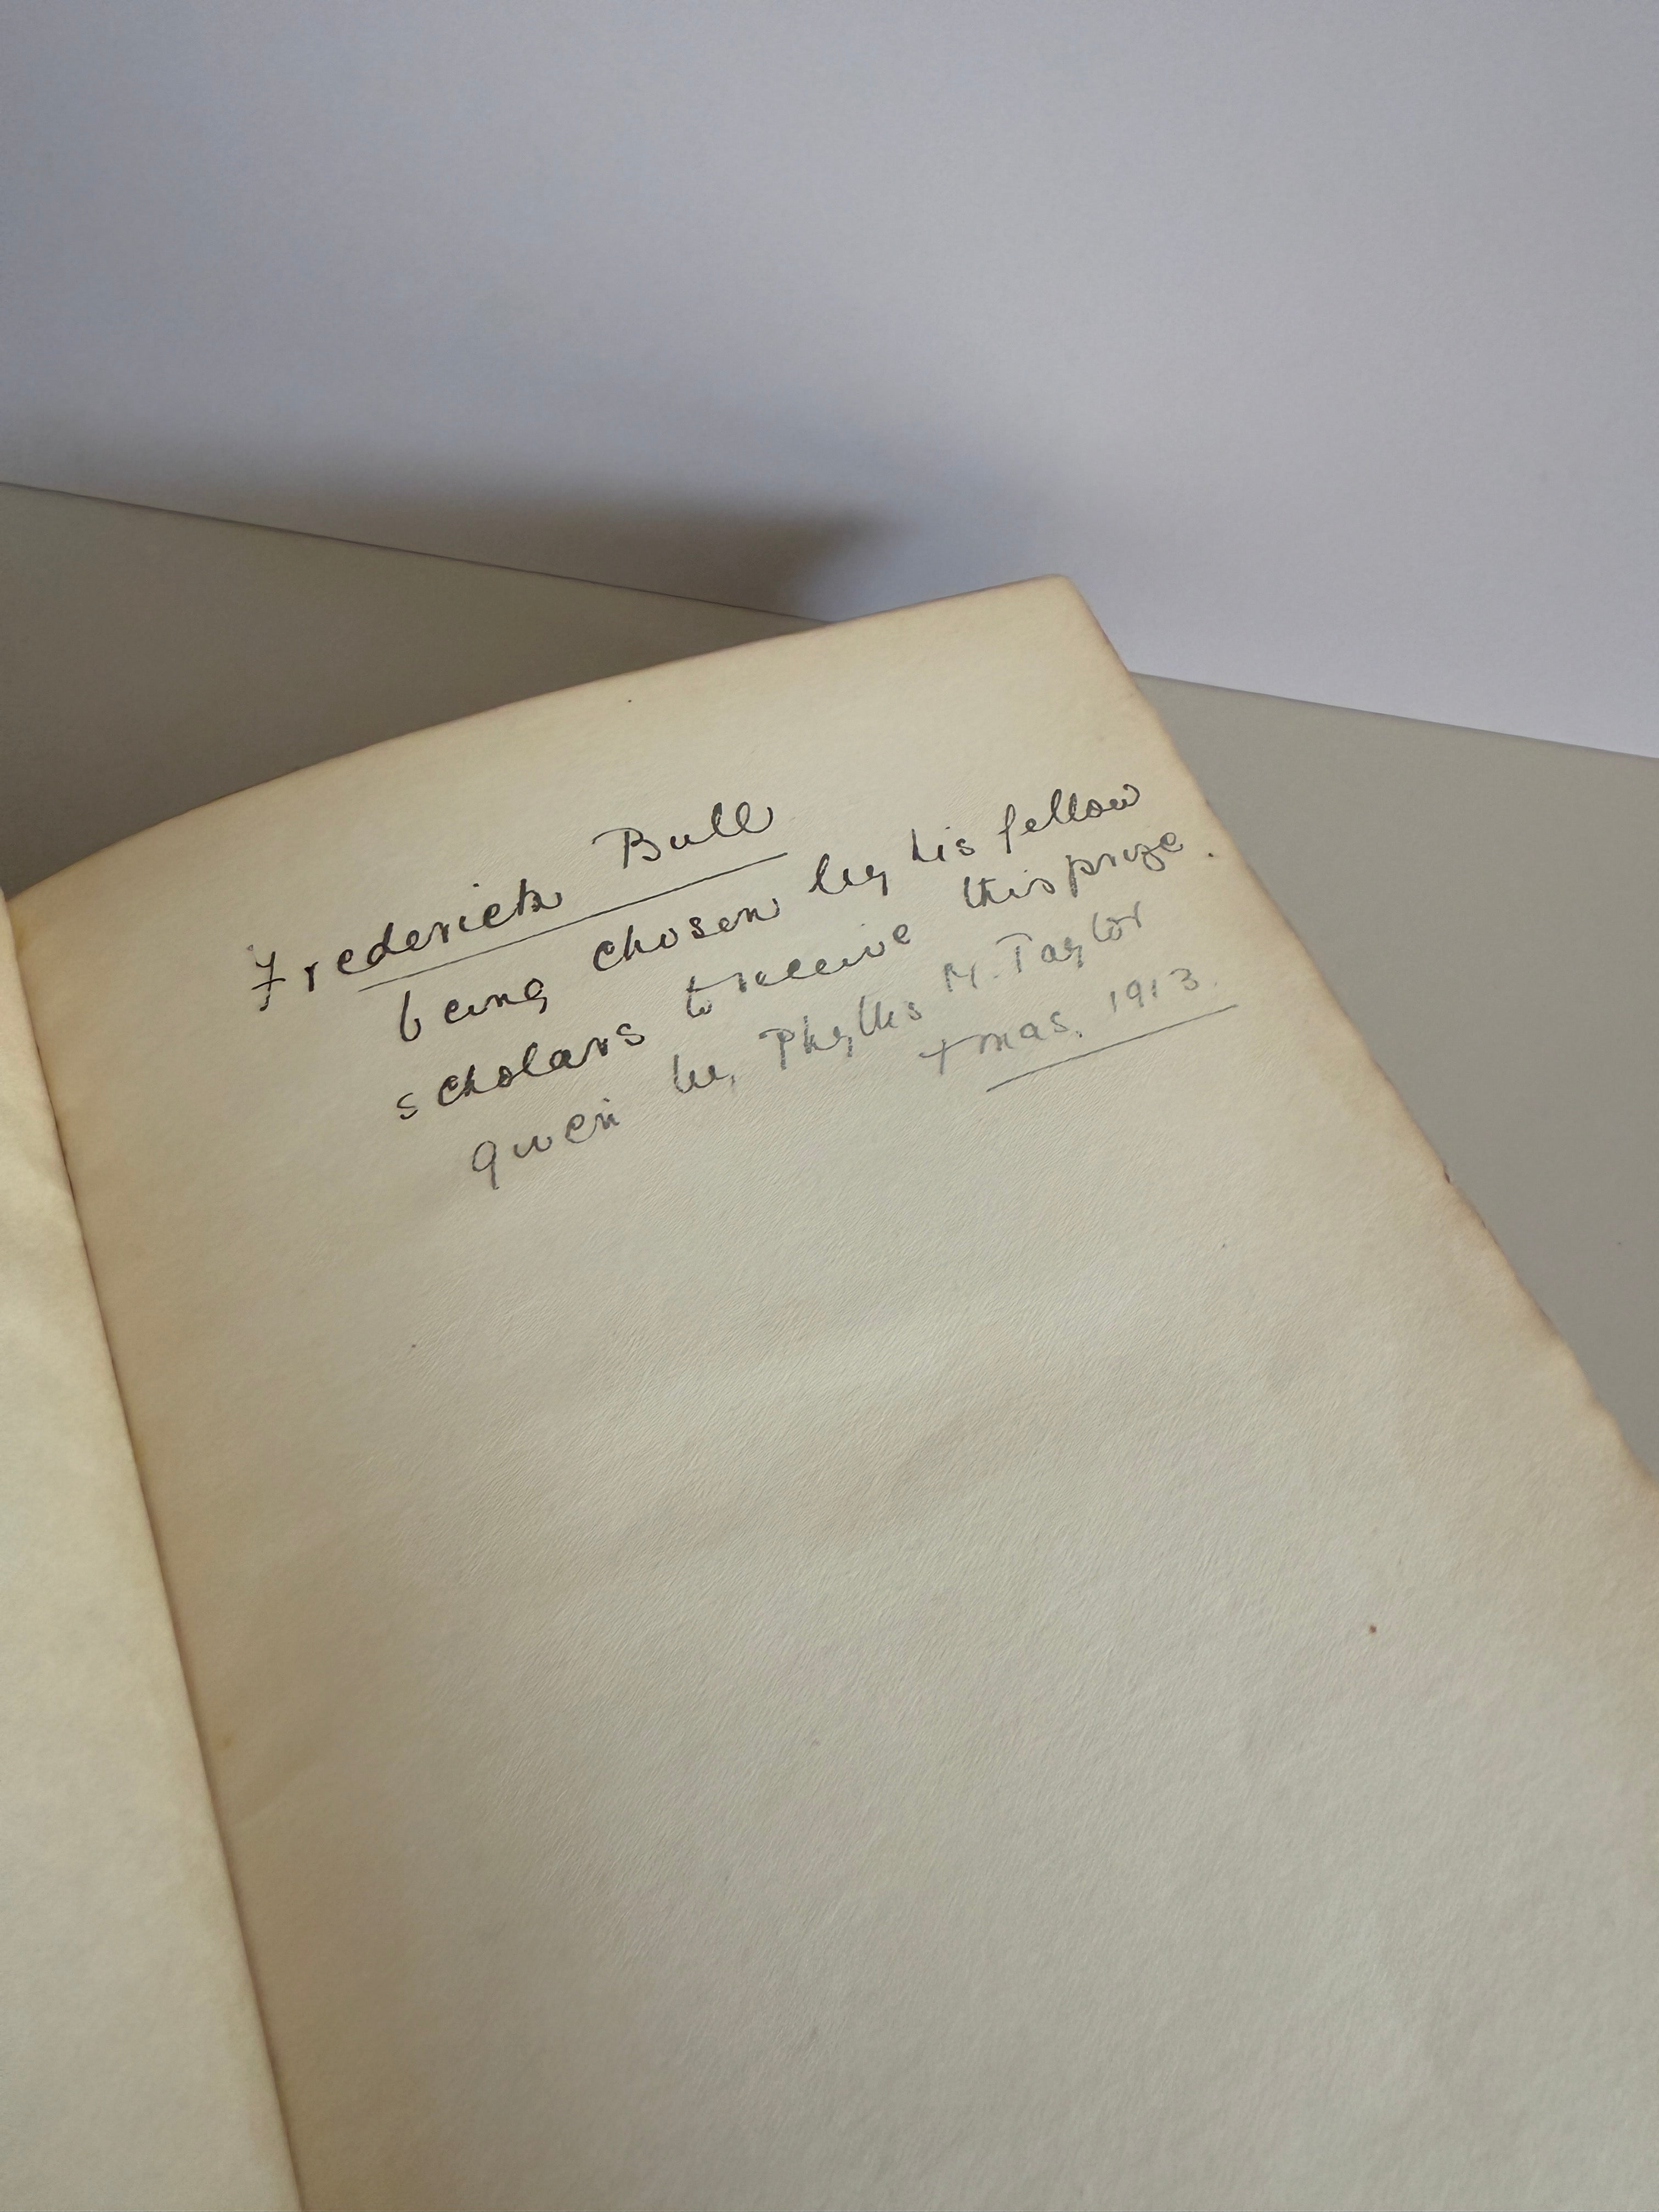 Frederick Bull
being chosen by his fellow
scholars to receive this prize.
given by Phyllis M. Taylor
Xmas. 1913.